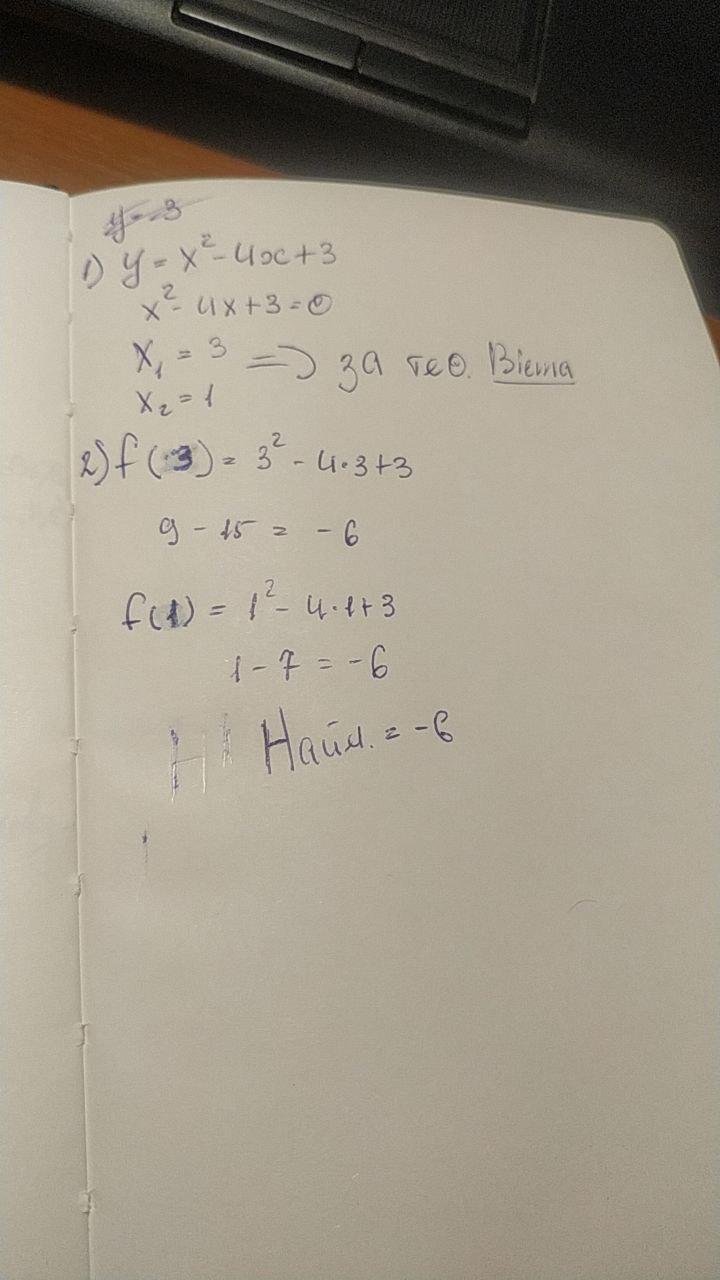 y=3
1) y = x² - 4x + 3
x² - 4x + 3 = 0
x₁ = 3 => за тео. Вієта
x₂ = 1
2) f(3) = 3² - 4·3+3
9 - 15 = -6
f(1) = 1² - 4·1+3
1 - 7 = -6
Н Найм. = -6